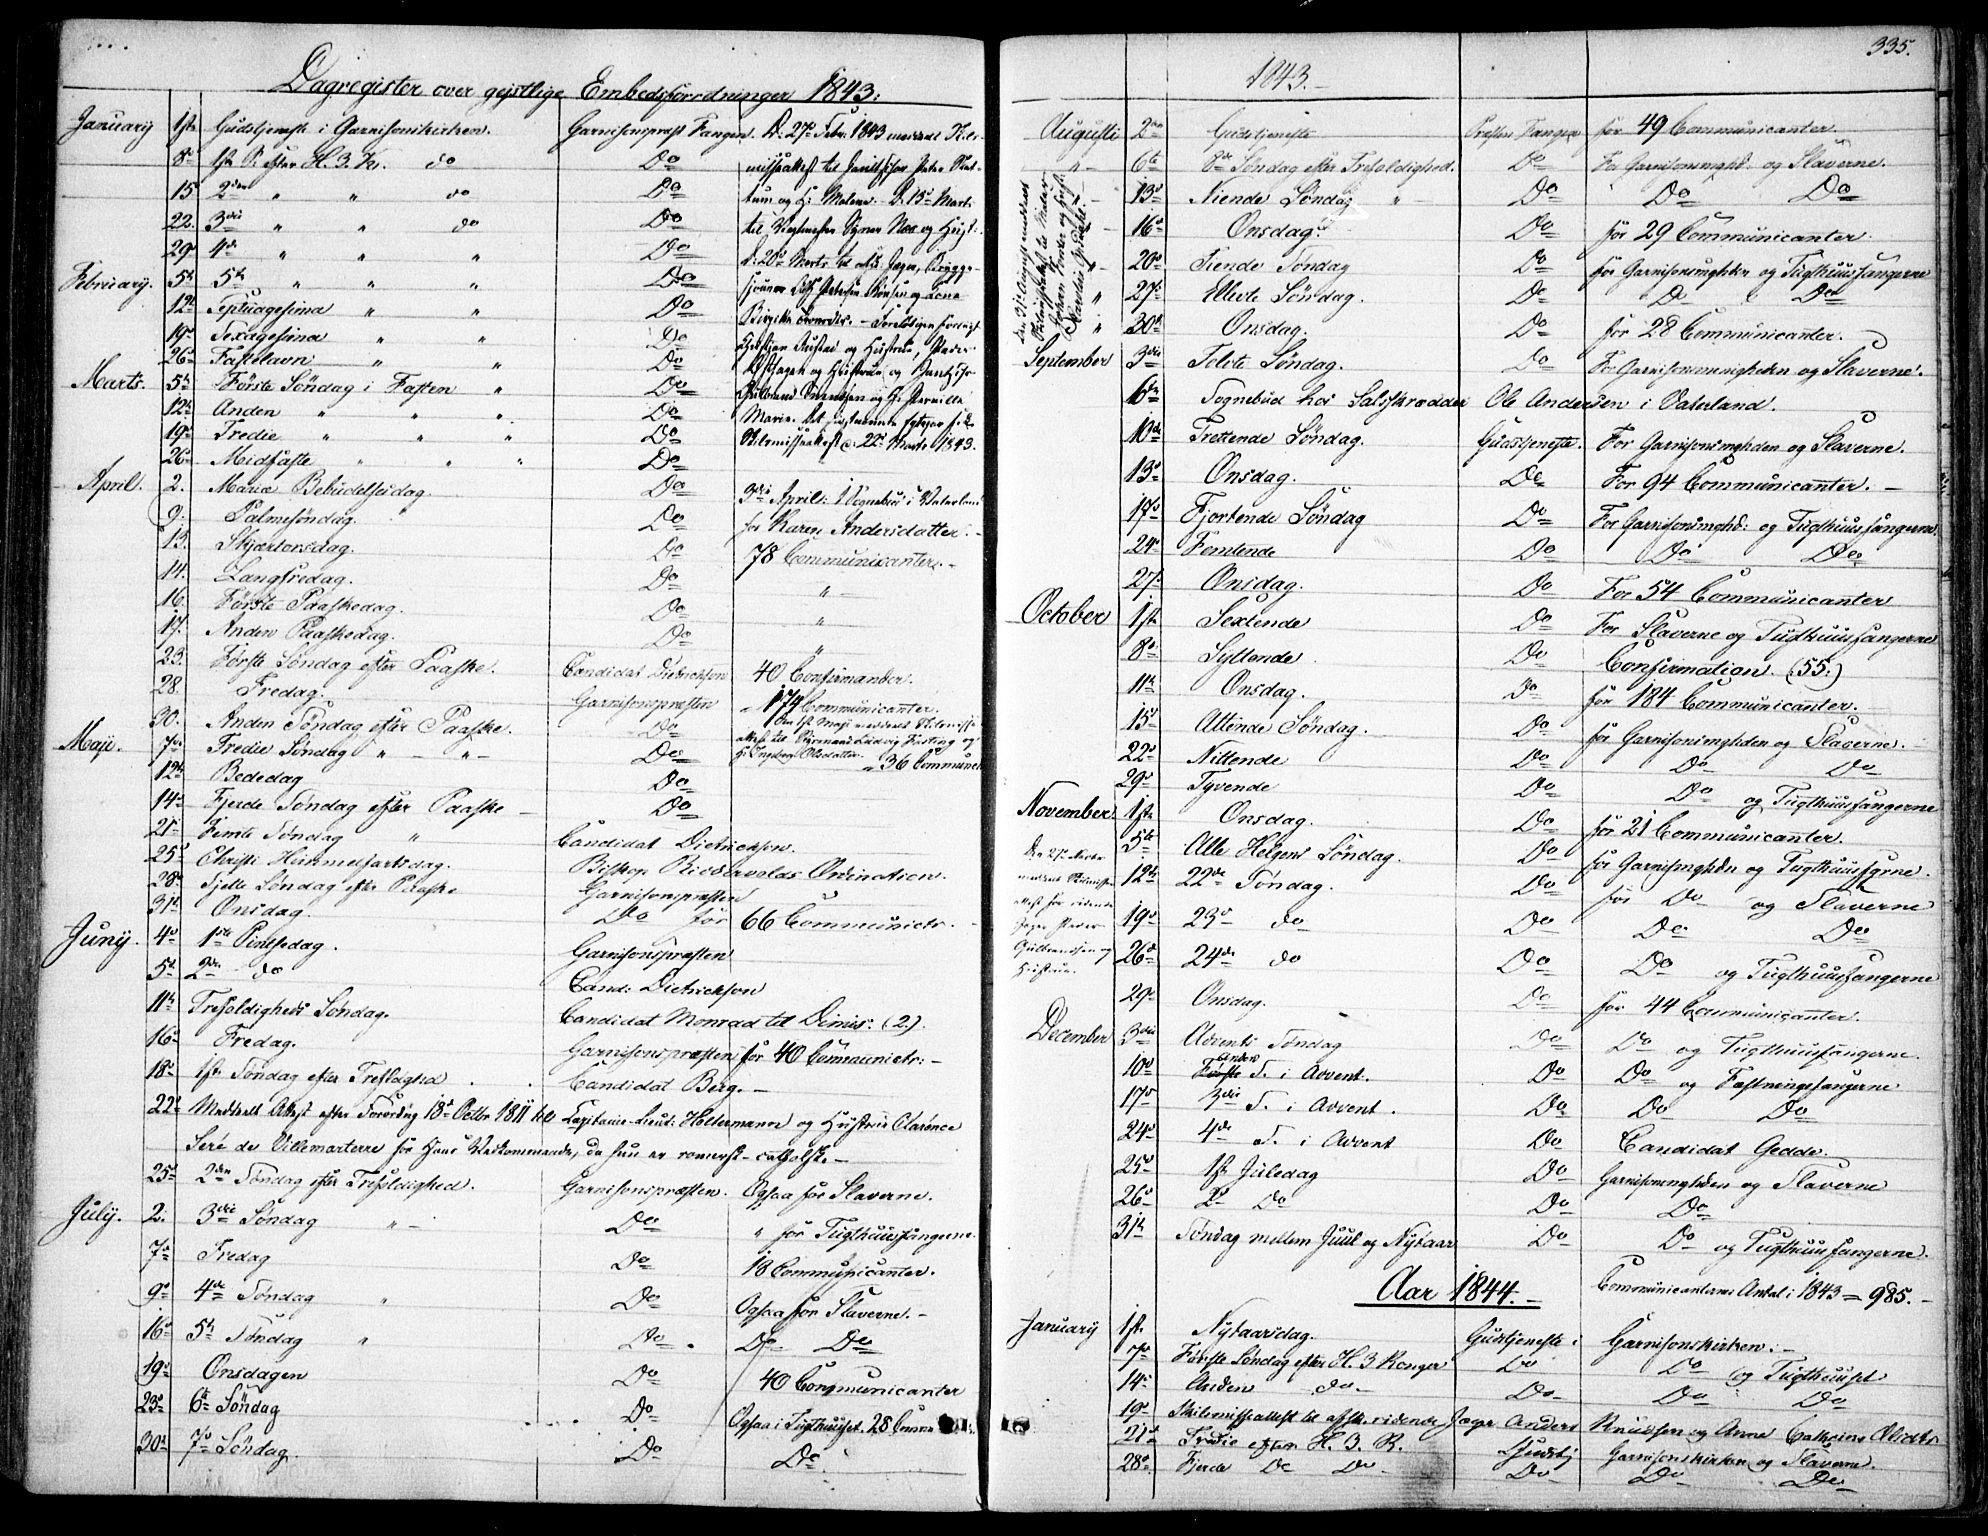 Dagregister over gejstlige Embedsforretninger 1843:
January 1ste Gudstjeneste i Garnisonskirken. Garnisonspræst Fangen. D. 27de Febr. 1843 meddeelt Skils-
8de 1ste S. efter H. 3 K. do Do misseattest til
15 2den " " do Do tum og H: Malene. D. 15de Marts
22. 3die " " do Do til
29de 4de " " " Do D. 20de Marts til
February. 5te 5te " " " Do
12te Septuagesima " " Do
19de Sexagesima " " Do
26de Fastelavn " " Do
Marts. 5te Første Søndag i Fasten " Do
12te Anden " " " Do Marie.
19de Tredie " " " Do Skilsmisseattest d. 22de Marts 1843.
26de Midfaste " " " Do
April. 2. Mariæ Bebudelsesdag. Do 3die April: Sognebud i Vaterland
9. Palmesøndag. Do for Karen Andersdatter.
13. Skjærtorsdag. Do 78 Communicanter. -
14. Langfredag. Do " -
16. Første Paaskedag. Do "
17. Anden Paaskedag. Do "
23. Første Søndag efter Paaske. Candidat Dietrichson 40 Confirmander.
28. Fredag. Garnisonspræsten 174 Communicanter.
30. Anden Søndag efter Paaske. Do Den 1ste Maji meddeelt Skilsmisse-
Maji. 7de Tredie Søndag " - " - Do
12te Bededag Do " 36 Commun
14de Fjerde Søndag efter Paaske - Do
21de Femte Søndag " Candidat Dietrichson.
25de Christi Himmelfartsdag. Biskop Riddervolds Ordination.
28de Sjette Søndag efter Paaske Garnisonspræsten
31te Onsdag. Do for 66 Communictr. -
Juny. 4de 1ste Pintsedag. Garnisonspræsten
5te 2den do Cand: Dietrichson
11te Trefoldigheds Søndag. Candidat Monrad til Dimis: (2).
16de Fredag. Garnisonspræsten for 40 Communictr: -
18de 1ste Søndag efter Trefoldighed . . Candidat Berg. -
22de Meddeelt Attest efter Forordng 18de Octbr 1811 til Capitain-Lieut: Holtermann og Hustrue Clarence
Sere de Villemarterre for Hans Vedkommende, da hun er romersk-catholsk. -
25de 2den Søndag efter Trefoldighed. Garnisonspræsten. Ogsaa for Slaverne.
July. 2. 3die Søndag " - Do " for Tugthuusfangerne.
7de Fredag Do 18 Communicanter.
9de 4de Søndag " Do Ogsaa for Slaverne. -
16de 5te Søndag " Do . Do Do
19de Onsdagen Do 40 Communicanter
23de 6te Søndag Do Ogsaa i Tugthuuset. 28 Comm
30te 7de Søndag. Do Do
335.
1843. -
Augusti 2den Gudstjeneste Præsten Fangen for 49 Communicanter.
" - 6te 8de Søndag efter Trefoldighed. Do For Garnisonsmghd: og Slaverne.
13de Niende Søndag " - Do Do Do
16de Onsdag. Do for 29 Communicanter
20de Tiende Søndag Do for Garnisonsmgheden og Tugthuusfangerne
" 27de Ellevte Søndag. Do Do Do
" 30te Onsdag. Do for 28 Communicanter.
September 3die Tolvte Søndag. Do For Garnisonsmenigheden og Slaverne.
6te Sognebud hos Salsskrædder Ole Andersen i Vaterland.
10de Trettende Søndag. Gudstjeneste. For Garnisonsmgheden og Slaverne.
13de Onsdag. Do For 94 Communicanter. -
17de Fjortende Søndag Do For Garnisonsmghd: og Tugthuusfangerne
24de Femtende Do Do Do
27de Onsdag. Do For 54 Communicanter
October 1ste Sextende Do For Slaverne og Tugthuusfangerne
8de Syttende Do Confirmation (55.)
11te Onsdag. Do for 184 Communicanter.
15de Attende Søndag. Do for Garnisonsmgheden og Slaverne. -
22de Nittende Do Do Do
29de Tyvende Do Do og Tugthuusfangerne
November 1ste Onsdag. Do for 21 Communicanter.
5te Alle Helgens Søndag. Do for Garnisonsmgheden og Tugthuusfgrne.
12te 22de Søndag. Do for Do og Slaverne
19de 23de do Do Do Do
26de 24de do Do Do og Tugthuusfangerne
29de Onsdag. Do for 44 Communicanter.
Gulbrandsen og
Hustrue.
December 3die Advents Søndag Do Do og Tugthuusfangerne.
10de Anden Første S. i Advent. Do Do og Fæstningsfangerne
17de 3die S. i Advent. Do Do Do
24de 4de S. i Advent Do Candidat Gedde.
25de 1ste Juledag Do Garnisonsmgheden og Slaverne
26de 2de Do Do Do
31te Søndag mellem Juul og Nytaar Do Do og Tugthuusfangerne.
Communicanternes Antal i 1843 = 985. -
Aar 1844. -
January 1ste Nytaarsdag. Gudstjeneste i Garnisonskirken: -
7de Første Søndag efter H. 3 Konger Do Do og Tugthuuset
14de Anden do - Do Do Do
19de Skilsmisseattest til afsk. ridende Jæger Anders Knudsen og Anne Cathrine
21de Tredie efter H. 3. K. Gudstj Garnisonskirken og Slaverne.
28de Fjerde Do Do Do Do Do